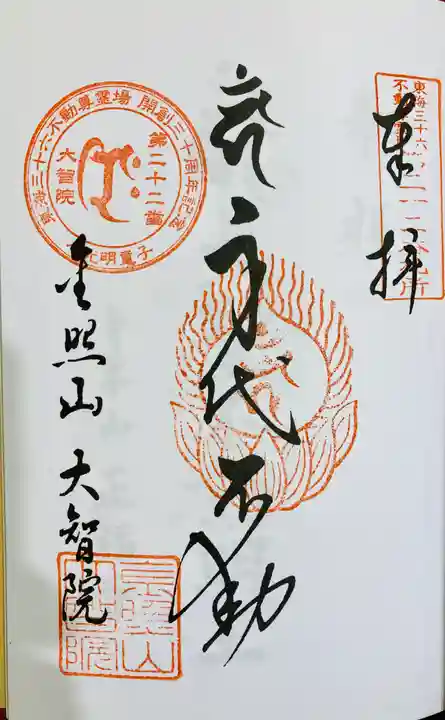 奉拝
東海三十六
不動
札所
身代不動
東海三十六不動尊霊場 開創三十周年記念
第二十二番
大智院
光明童子
金照山 大智院
金照山
大智院